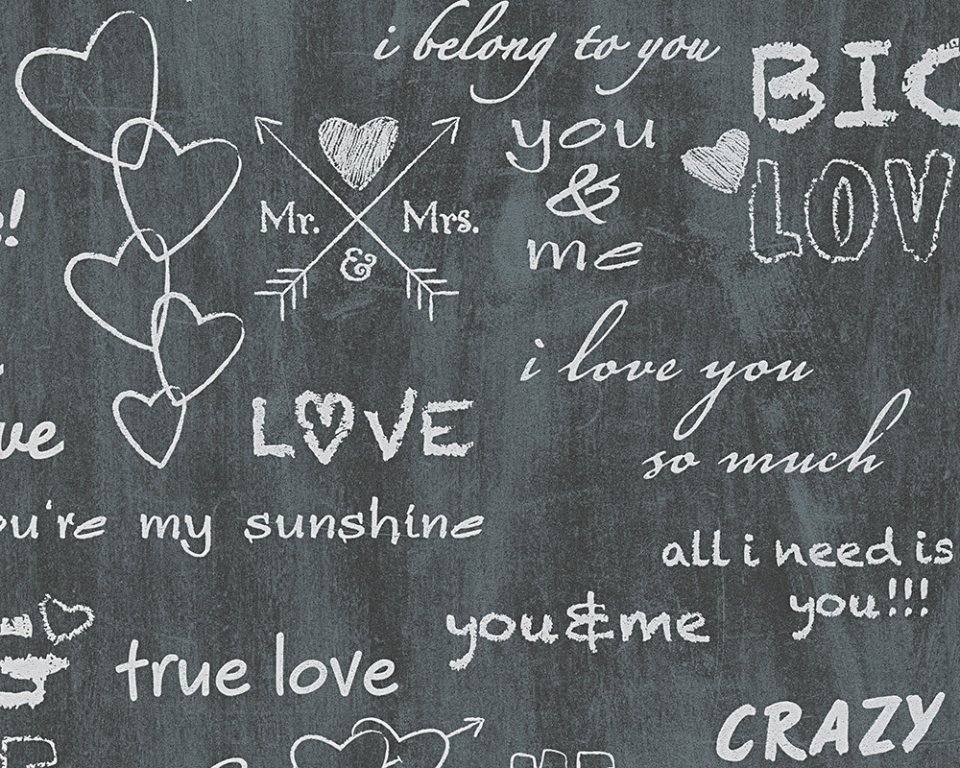 i belong to you
BIG
you
&
me
LOV
Mr. & Mrs.
i love you
so much
LOVE
ou're my sunshine
all i need is
you!!!
you & me
true love
CRAZY